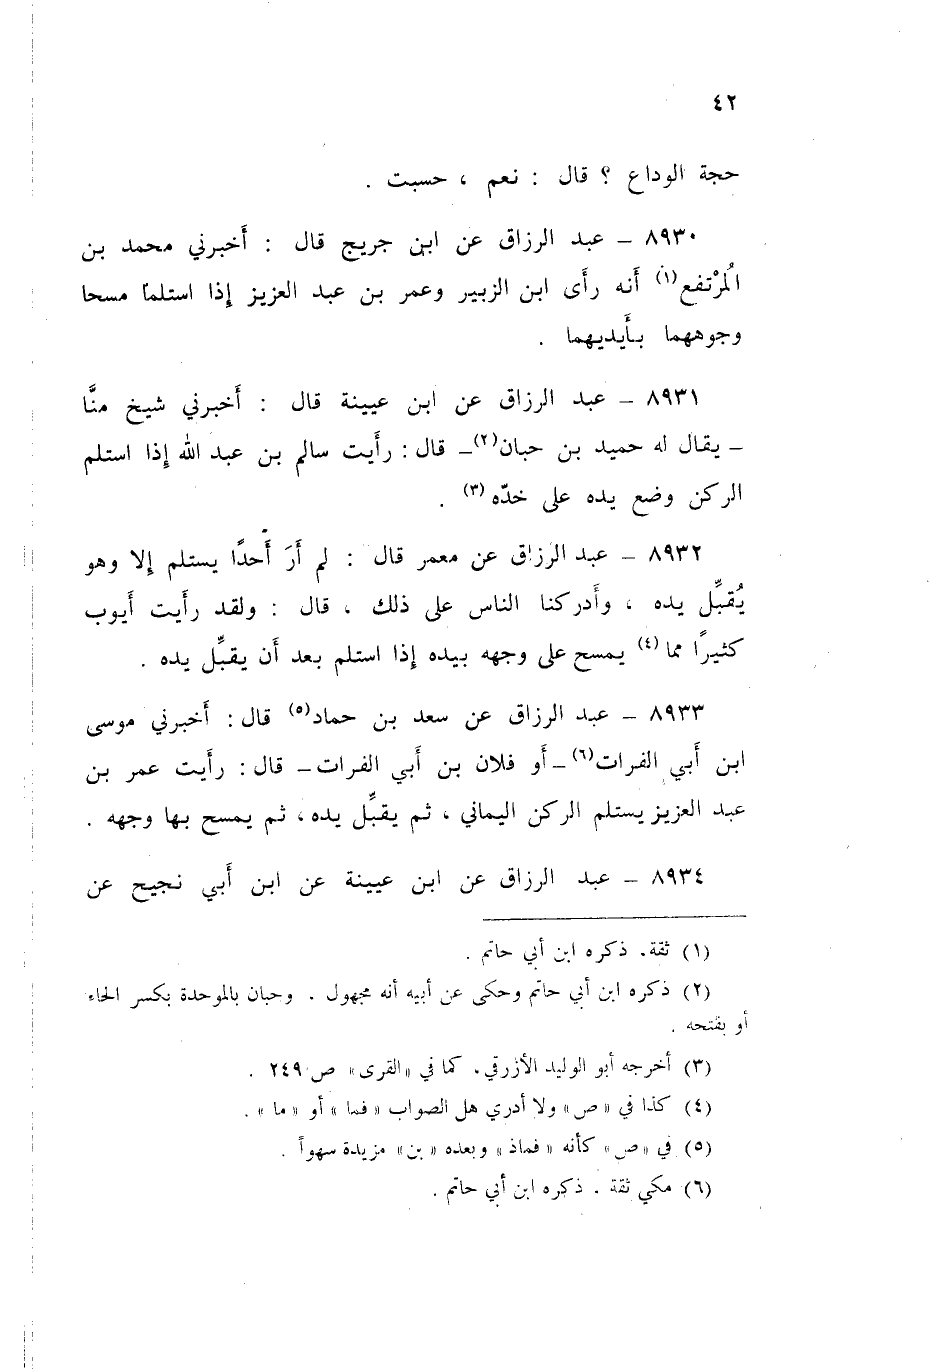 ٤٢
حجة الوداع ؟ قال : نعم ، حسبت .
٨٩٣٠ – عبد الرزاق عن ابن جريج قال : أخبرني محمد بن
المُرْتفع(١) أنه رأى ابن الزبير وعمر بن عبد العزيز إذا استلما مسحا
وجوههما بأيديهما .
٨٩٣١ – عبد الرزاق عن ابن عيينة قال : أخبرني شيخ منَّا
– يقال له حميد بن حبان(٢)– قال : رأيت سالم بن عبد الله إذا استلم
الركن وضع يده على خدّه (٣) .
٨٩٣٢ – عبد الرزاق عن معمر قال : لم أرَ أحدًا يستلم إلا وهو
يُقبِّل يده ، وأدركنا الناس على ذلك ، قال : ولقد رأيت أيوب
كثيرًا مما (٤) يمسح على وجهه بيده إذا استلم بعد أن يقبِّل يده .
٨٩٣٣ – عبد الرزاق عن سعد بن حماد(٥) قال : أخبرني موسى
ابن أبي الفرات(٦)– أو فلان بن أبي الفرات – قال : رأيت عمر بن
عبد العزيز يستلم الركن اليماني ، ثم يقبِّل يده، ثم يمسح بها وجهه .
٨٩٣٤ – عبد الرزاق عن ابن عيينة عن ابن أبي نجيح عن
(١) ثقة. ذكره ابن أبي حاتم .
(٢) ذكره ابن أبي حاتم وحكى عن أبيه أنه مجهول . وحبان بالموحدة بكسر الحاء
أو بفتحه .
(٣) أخرجه أبو الوليد الأزرقي. كما في «القرى» ص ٢٤٩ .
(٤) كذا في « ص » ولا أدري هل الصواب « فما » أو « ما » .
(٥) في « ص » كأنه « فماذ » وبعده « بن » مزيدة سهواً .
(٦) مكي ثقة . ذكره ابن أبي حاتم .